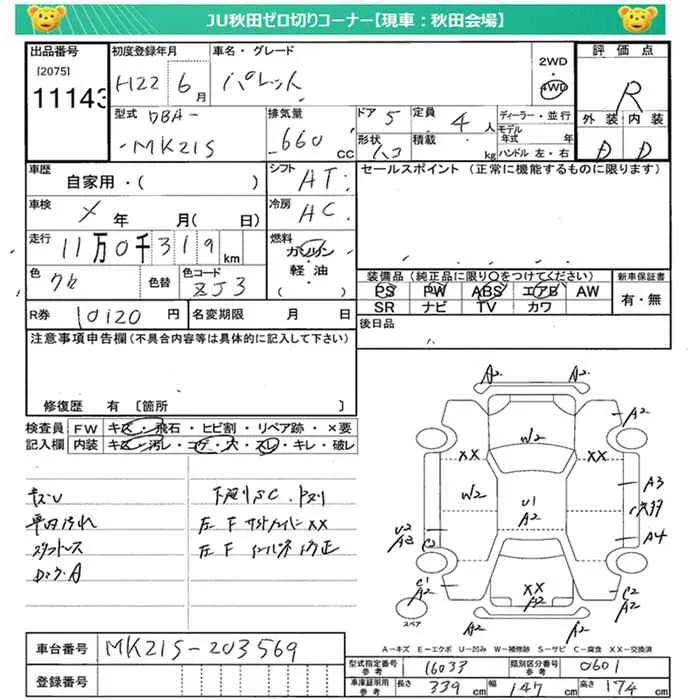 JU秋田ゼロ切りコーナー【現車：秋田会場】
出品番号 初度登録年月 車名・グレード 2WD・4WD 評価点
[2075]
11143 H22 6月 パレット R
型式 DBA-MK21S 排気量 660cc ドア 5 定員 4人 ディーラー・並行 外装 内装
形状 ハコ 積載 kg モデル年式 年 ハンドル 左・右 D D
車歴 自家用・( ) シフト AT セールスポイント (正常に機能するものに限ります)
車検 メ 年 月( 日) 冷房 AC
走行 11万0千319km 燃料 ガソリン 軽油 ・( )
色 クロ 色替 色コード ZJ3 装備品 (純正品に限り○をつけてください) 新車保証書
PS PW ABS エアB AW 有・無
SR ナビ TV カワ
R券 10120円 名変期限 月 日 後日品
注意事項申告欄 (不具合内容等は具体的に記入して下さい)
修復歴 有 〔箇所 〕
検査員記入欄 FW キズ・飛石・ヒビ割・リペア跡・×要
内装 キズ・汚レ・コゲ・穴・スレ・キレ・破レ
キズU 下廻りSC.
スタットレス 左F XX
左F
A2 A2
A2
W2
XX XX
W2 U1 A2 A3
U2 A3 A4
C1 A2 XX A2 C2 A2
A2 A2
スペア
A-キズ E-エクボ U-凹み W-補修跡 S-サビ C-腐食 XX-交換済
車台番号 MK21S-203569
登録番号
型式指定番号 参考 16033 類別区分番号 参考 0601
車庫証明用 参考 長さ 339cm 幅 147cm 高さ 174cm